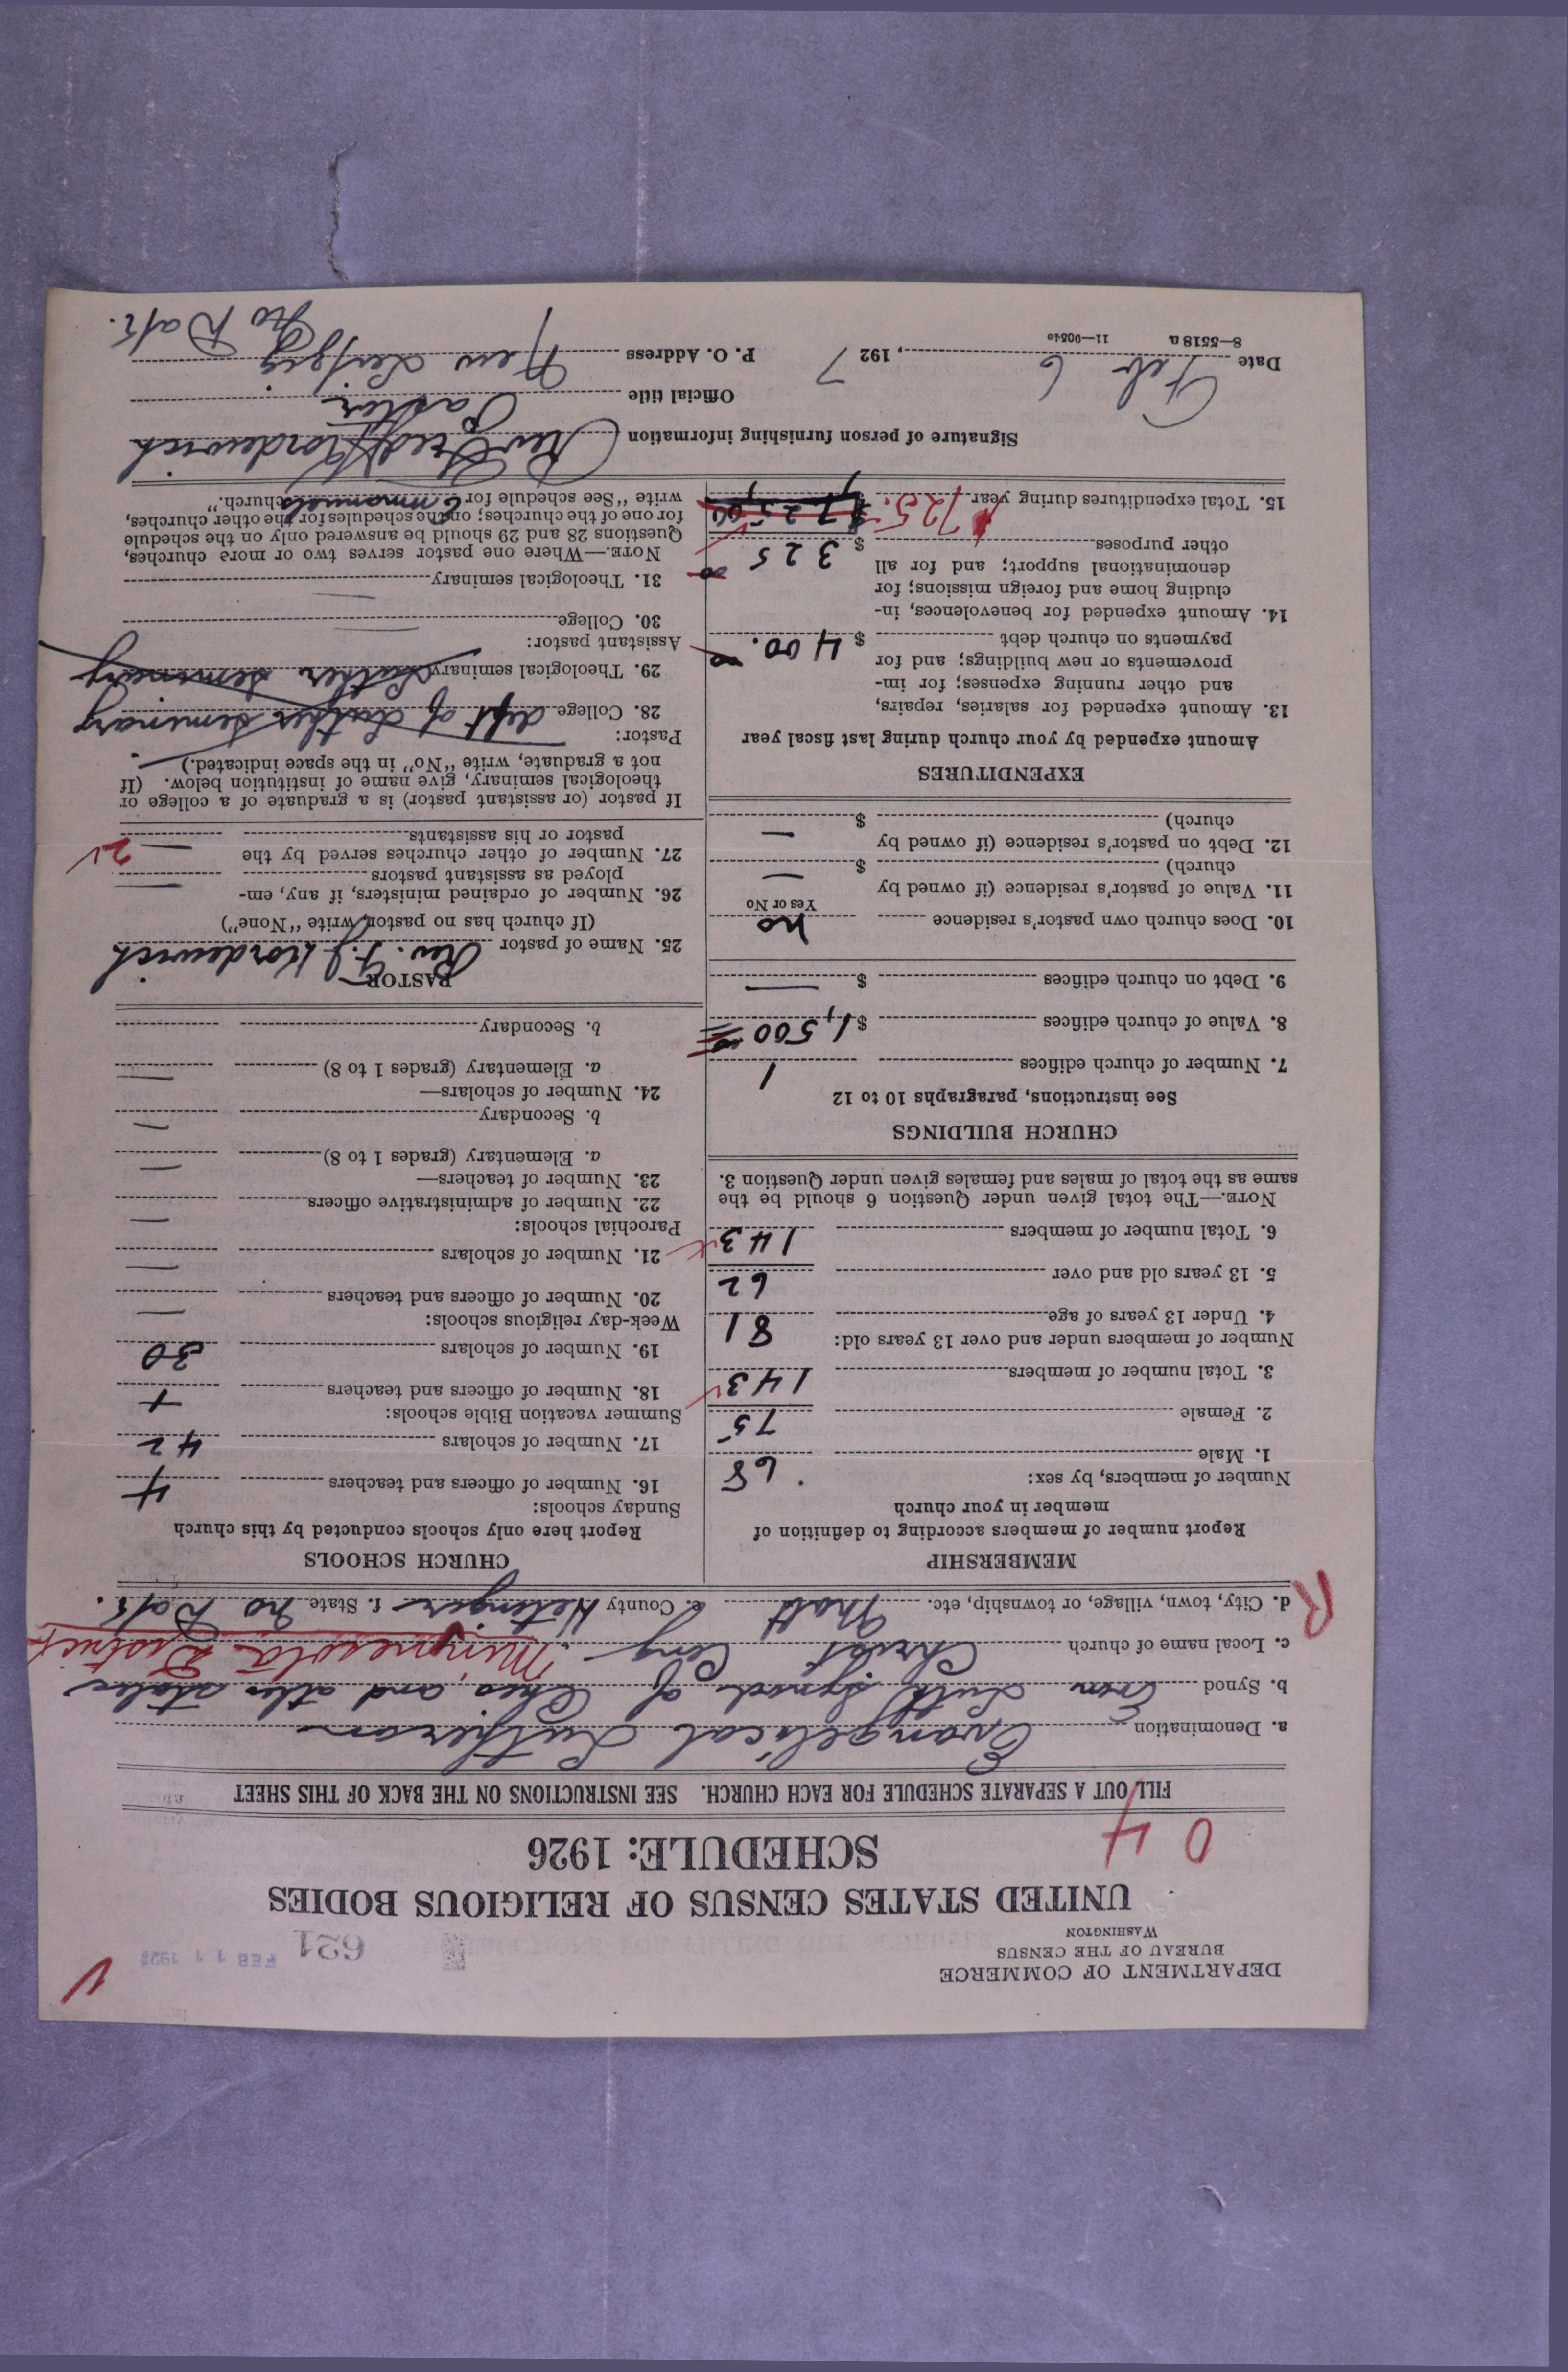 DEPARTMENT OF COMMERCE
BUREAU OF THE CENSUS
WASHINGTON
621
FEB 11 1927
UNITED STATES CENSUS OF RELIGIOUS BODIES
SCHEDULE: 1926
0 4
FILL OUT A SEPARATE SCHEDULE FOR EACH CHURCH. SEE INSTRUCTIONS ON THE BACK OF THIS SHEET
a. Denomination Evangelical Lutheran
b. Synod Even Luth Synod of Ohio and other states
c. Local name of church Christ Cong. Minnesota District
d. City, town, village, or township, etc. Mott e. County Hetinger f. State No Dak.
R
MEMBERSHIP
Report number of members according to definition of
member in your church
Number of members, by sex:
1. Male 68
2. Female 75
3. Total number of members 143
Number of members under and over 13 years old:
4. Under 13 years of age 81
5. 13 years old and over 62
6. Total number of members 143
NOTE.—The total given under Question 6 should be the
same as the total of males and females given under Question 3.
CHURCH BUILDINGS
See instructions, paragraphs 10 to 12
7. Number of church edifices 1
8. Value of church edifices $1,500
9. Debt on church edifices $ —
10. Does church own pastor's residence no
Yes or No
11. Value of pastor's residence (if owned by
church) $ —
12. Debt on pastor's residence (if owned by
church) $ —
EXPENDITURES
Amount expended by your church during last fiscal year
13. Amount expended for salaries, repairs,
and other running expenses; for im-
provements or new buildings; and for
payments on church debt $ 400.
14. Amount expended for benevolences, in-
cluding home and foreign missions; for
denominational support; and for all
other purposes $ 325
15. Total expenditures during year $725. $725,00
CHURCH SCHOOLS
Report here only schools conducted by this church
Sunday schools:
16. Number of officers and teachers 4
17. Number of scholars 42
Summer vacation Bible schools:
18. Number of officers and teachers
19. Number of scholars 30
Week-day religious schools:
20. Number of officers and teachers —
21. Number of scholars —
Parochial schools:
22. Number of administrative officers —
23. Number of teachers—
a. Elementary (grades 1 to 8) —
b. Secondary —
24. Number of scholars—
a. Elementary (grades 1 to 8) —
b. Secondary
PASTOR
25. Name of pastor Rev. F. J Kordewich
(If church has no pastor, write "None")
26. Number of ordained ministers, if any, em-
ployed as assistant pastors —
27. Number of other churches served by the
pastor or his assistants — 2
If pastor (or assistant pastor) is a graduate of a college or
theological seminary, give name of institution below. (If
not a graduate, write "No" in the space indicated.)
Pastor:
28. College dept of Luther Seminary
29. Theological seminary Luther Seminary
Assistant pastor:
30. College —
31. Theological seminary —
NOTE.—Where one pastor serves two or more churches,
Questions 28 and 29 should be answered only on the schedule
for one of the churches; on the schedules for the other churches,
write "See schedule for Emmanuels church."
Signature of person furnishing information Rev Fred J Kordewich
Official title Pastor
Date Feb 6, 1927 P. O. Address New Leipzig
No Dak.
8—5518 a 11—90540